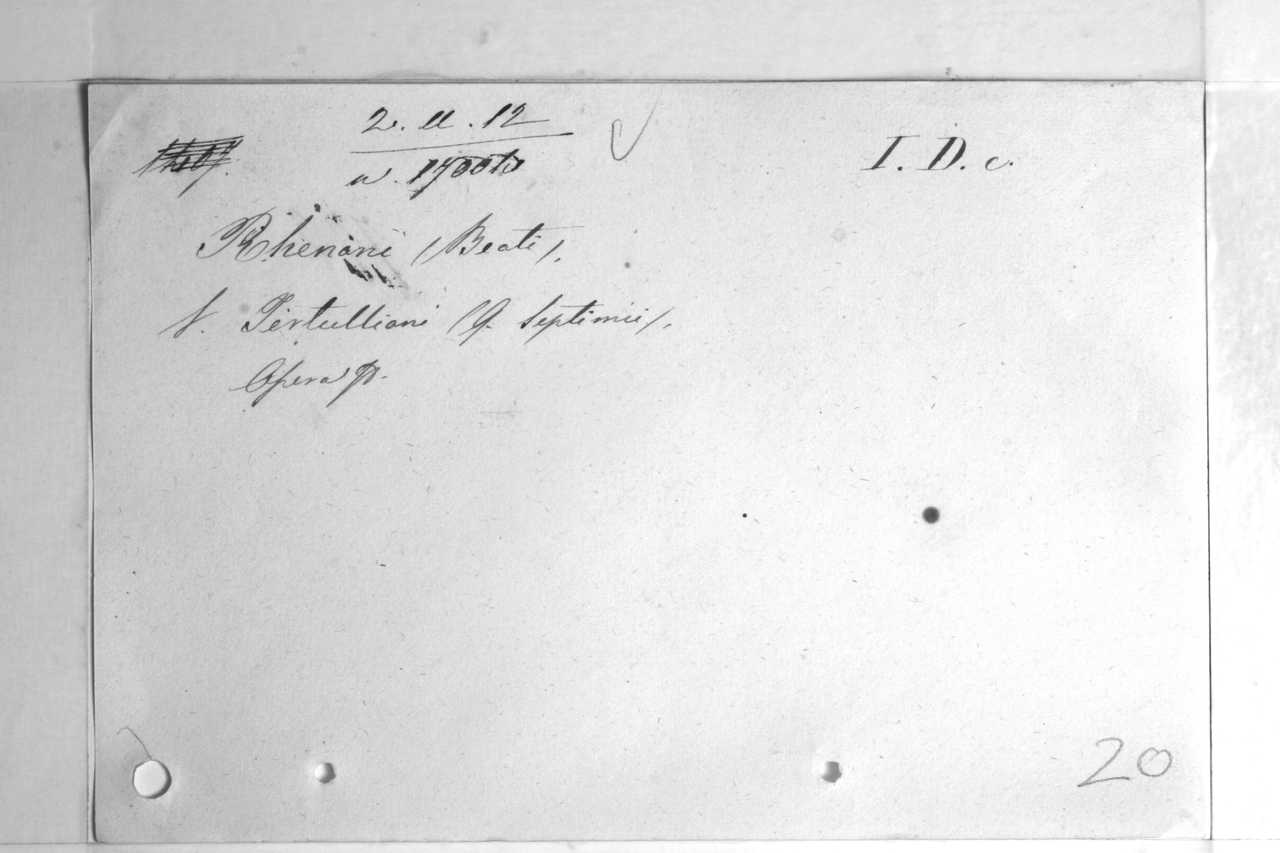 2. ll. 12 I. D. c.
Rhenani (Beati).
v. Tertulliani (Q. Septimii).
Opera p.
20